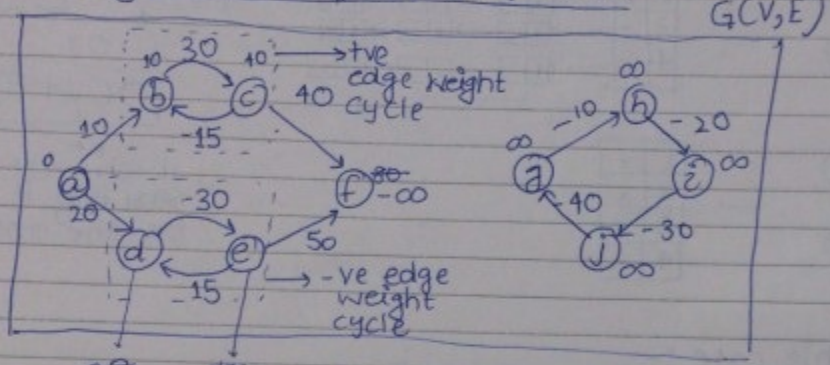 G(V,E)
10 30 40 → +ve
b c 40 edge weight
cycle
10 -15
0 a
20 -30
f 80 -∞
d e 50
15
→ -ve edge
weight
cycle
∞
-10 h -20
∞ g i ∞
-40 -30
j ∞